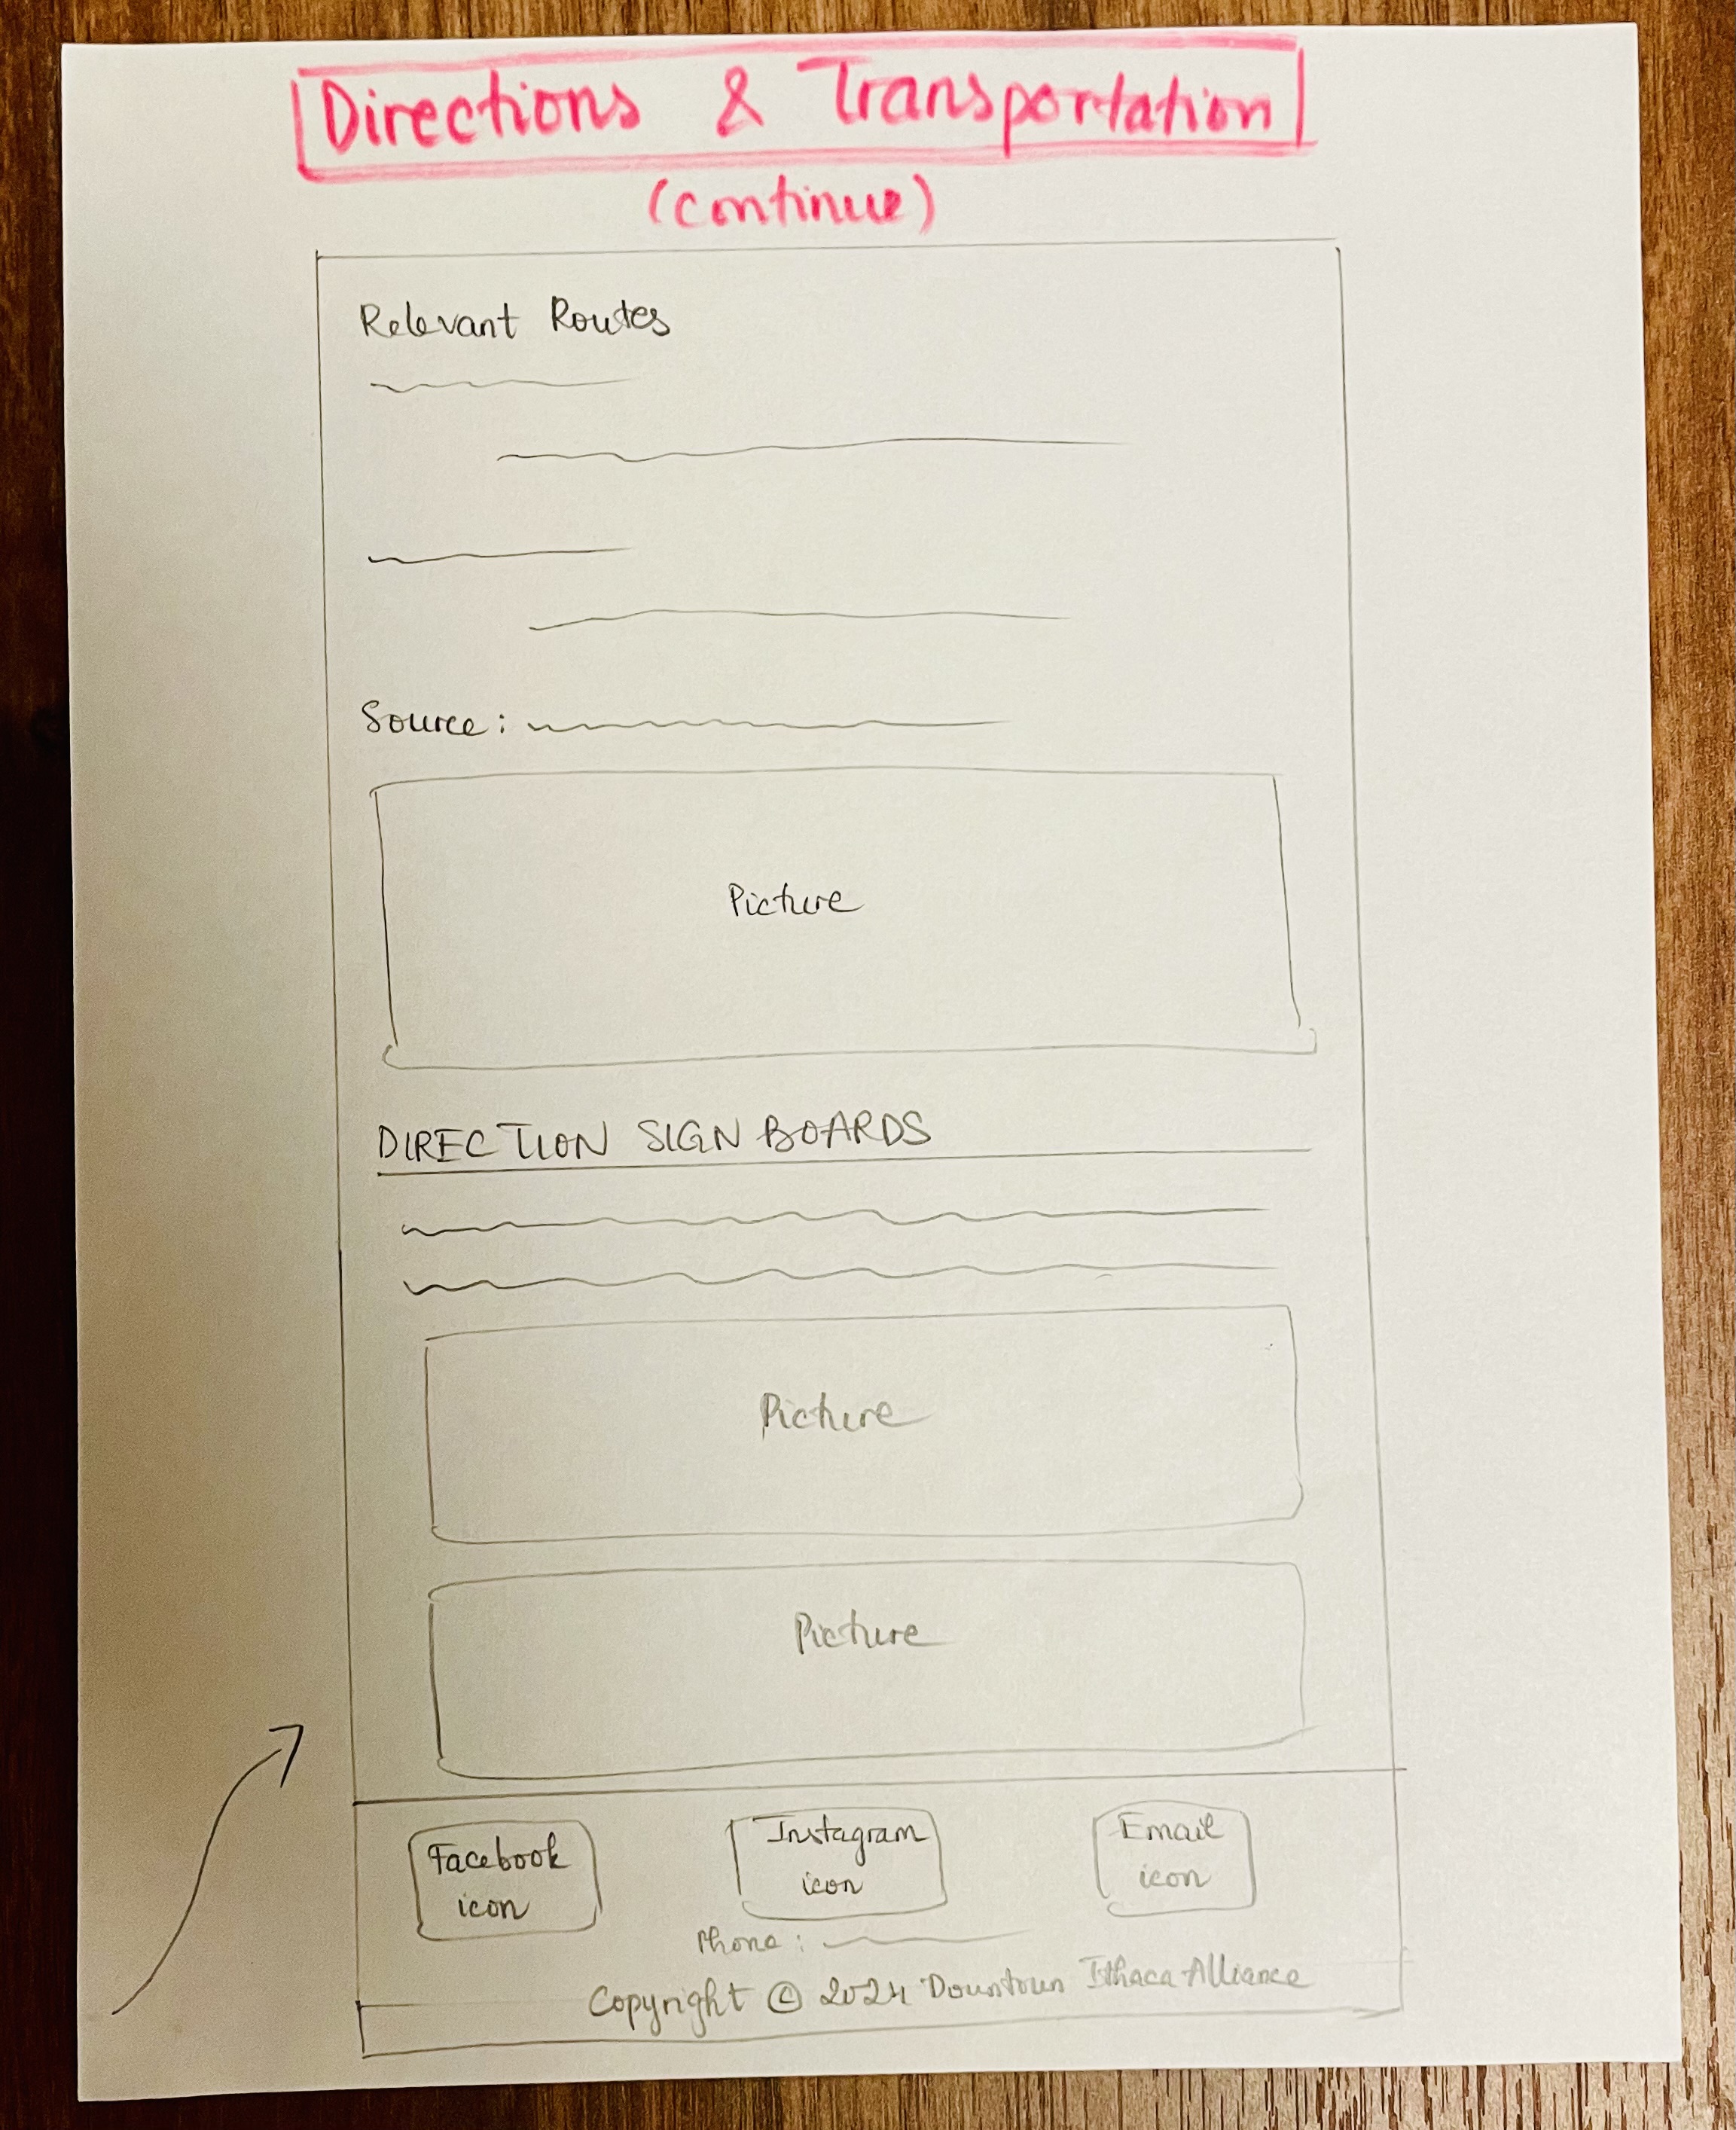 Directions & Transportation
(continue)
Relevant Routes
Source:
Picture
DIRECTION SIGN BOARDS
Picture
Picture
Facebook
icon
Instagram
icon
Email
icon
Phone:
Copyright © 2024 Downtown Ithaca Alliance